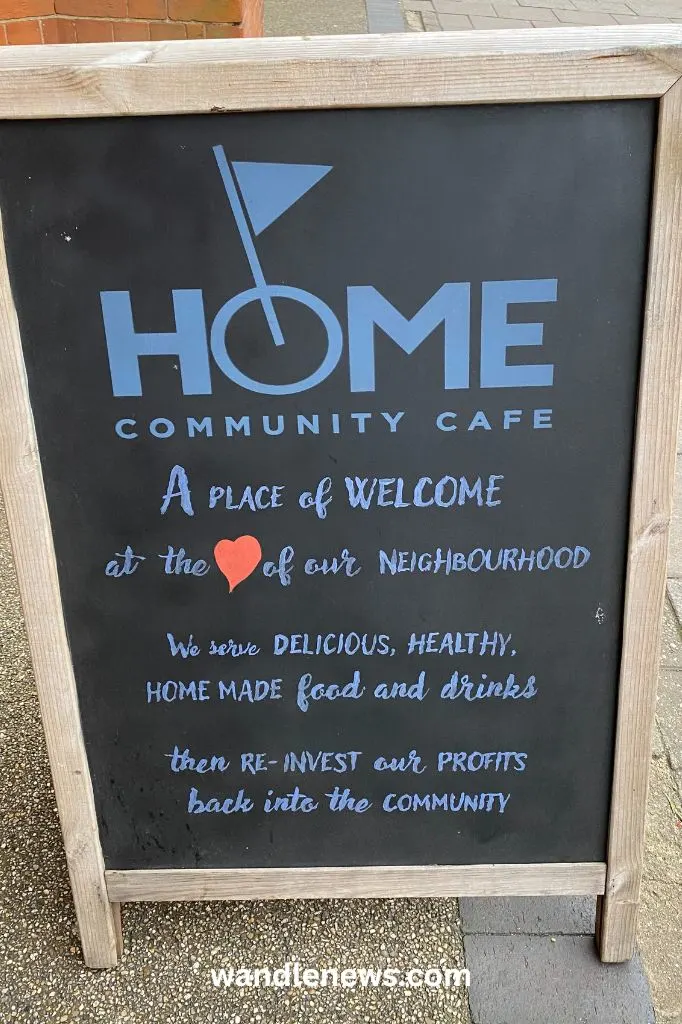 HOME
COMMUNITY CAFE
A PLACE of WELCOME
at the of our NEIGHBOURHOOD
We serve DELICIOUS, HEALTHY,
HOME MADE food and drinks
then RE-INVEST our PROFITS
back into the COMMUNITY
wandlenews.com